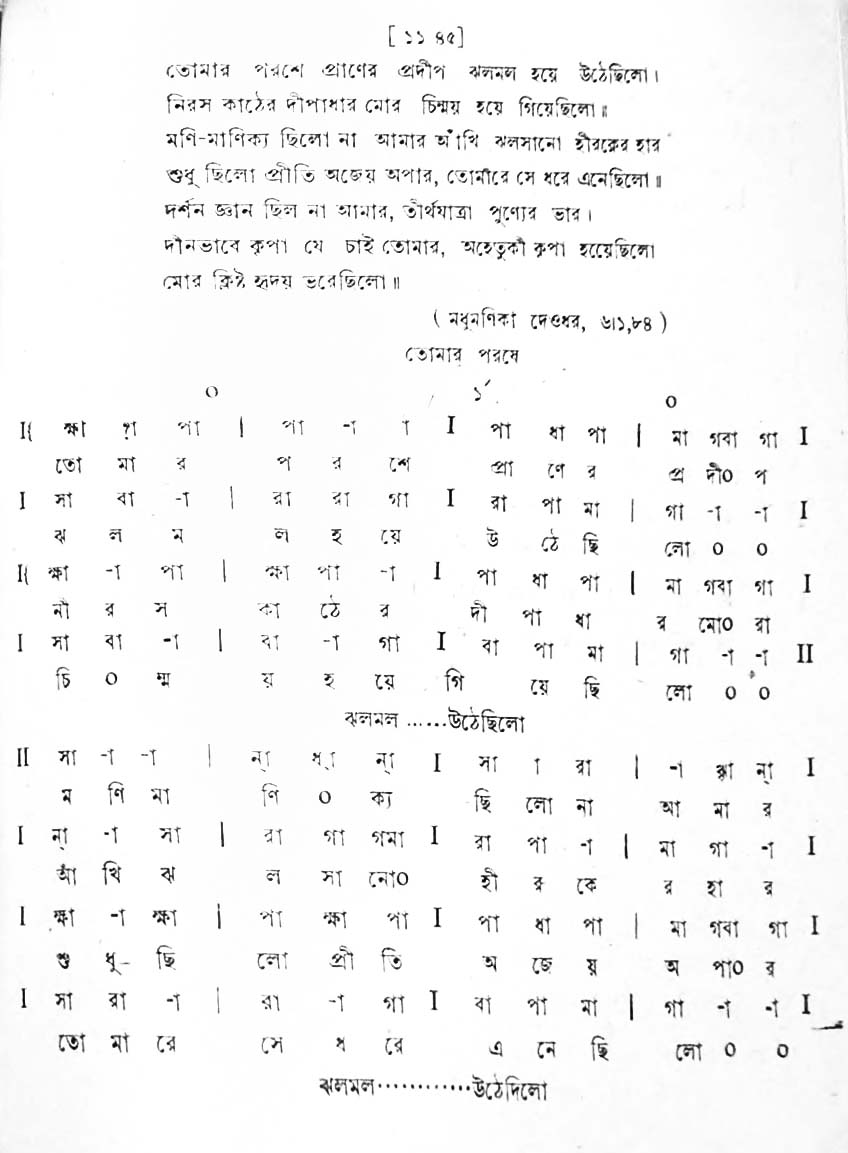 [ ১১ ৪৫]
তোমার পরশে প্রাণের প্রদীপ ঝলমল হয়ে উঠেছিলো।
নিরস কাঠের দীপাধার মোর চিন্ময় হয়ে গিয়েছিলো॥
মণি-মাণিক্য ছিলো না আমার আঁখি ঝলসানো হীরকের হার
শুধু ছিলো প্রীতি অজেয় অপার, তোমারে সে ধরে এনেছিলো॥
দর্শন জ্ঞান ছিল না আমার, তীর্থযাত্রা পুণ্যের ভার।
দীনভাবে কৃপা যে চাই তোমার, অহেতুকী কৃপা হয়েেছিলো
মোর ক্লিষ্ট হৃদয় ভরেছিলো॥
( মধুমণিকা দেওঘর, ৬।১,৮৪ )
তোমার পরষে
০ ১´ ০
I{ ক্ষা া পা | পা -া া I পা ধা পা | মা গবা গা I
তো মা র প র শে প্রা ণে র প্র দী০ প
I সা বা -া | রা রা গা I রা পা মা | গা -া -া I
ঝ ল ম ল হ য়ে উ ঠে ছি লো ০ ০
I{ ক্ষা -া পা | ক্ষা পা -া I পা ধা পা | মা গবা গা I
নী র স কা ঠে র দী পা ধা র মো০ রা
I সা বা -া | বা -া গা I বা পা মা | গা -া -া II
চি ০ ন্ম য় হ য়ে গি য়ে ছি লো ০ ০
ঝলমল ......উঠেছিলো
II সা -া -া | ন্া ধ্া ন্া I সা া রা | -া ন্া I
ম ণি মা ণি ০ ক্য ছি লো না আ মা র
I ন্া -া সা | রা গা গমা I রা পা -া | মা গা -া I
আঁ খি ঝ ল সা নো০ হী র কে র হা র
I ক্ষা -া ক্ষা | পা ক্ষা পা I পা ধা পা | মা গবা গা I
শু ধু- ছি লো প্রী তি অ জে য় অ পা০ র
I সা রা -া | রা -া গা I বা পা মা | গা -া -া I
তো মা রে সে ধ রে এ নে ছি লো ০ ০
ঝলমল............উঠেদিলো